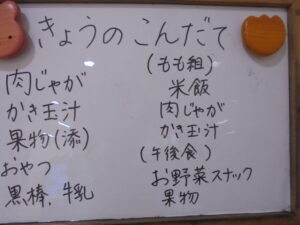 きょうのこんだて
肉じゃが
かき玉汁
果物(添)
おやつ
黒棒、牛乳
(もも組)
米飯
肉じゃが
かき玉汁
(午後食)
お野菜スナック
果物